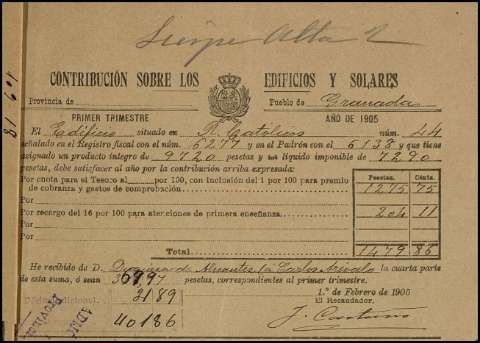 Sierpe Alta 2
CONTRIBUCIÓN SOBRE LOS EDIFICIOS Y SOLARES
Provincia de Pueblo de Granada
PRIMER TRIMESTRE AÑO DE 1905
El Edificio situado en R. Católicos núm. 44
señalado en el Registro fiscal con el núm. 6277 y en el Padrón con el 6135 y que tiene
asignado un producto íntegro de 9720 pesetas y un líquido imponible de 7290
pesetas, debe satisfacer al año por la contribución arriba expresada:
Pesetas. Cénts.
Por cuota para el Tesoro al por 100, con inclusión del 1 por 100 para premio
de cobranza y gastos de comprobación. 1275 75
Por recargo del 16 por 100 para atenciones de primera enseñanza. 204 11
Total 1479 86
He recibido de D. la cuarta parte
de esta suma, ó sean 369 97 pesetas, correspondientes al primer trimestre.
31 89 1.º de Febrero de 1905
El Recaudador.
401 86